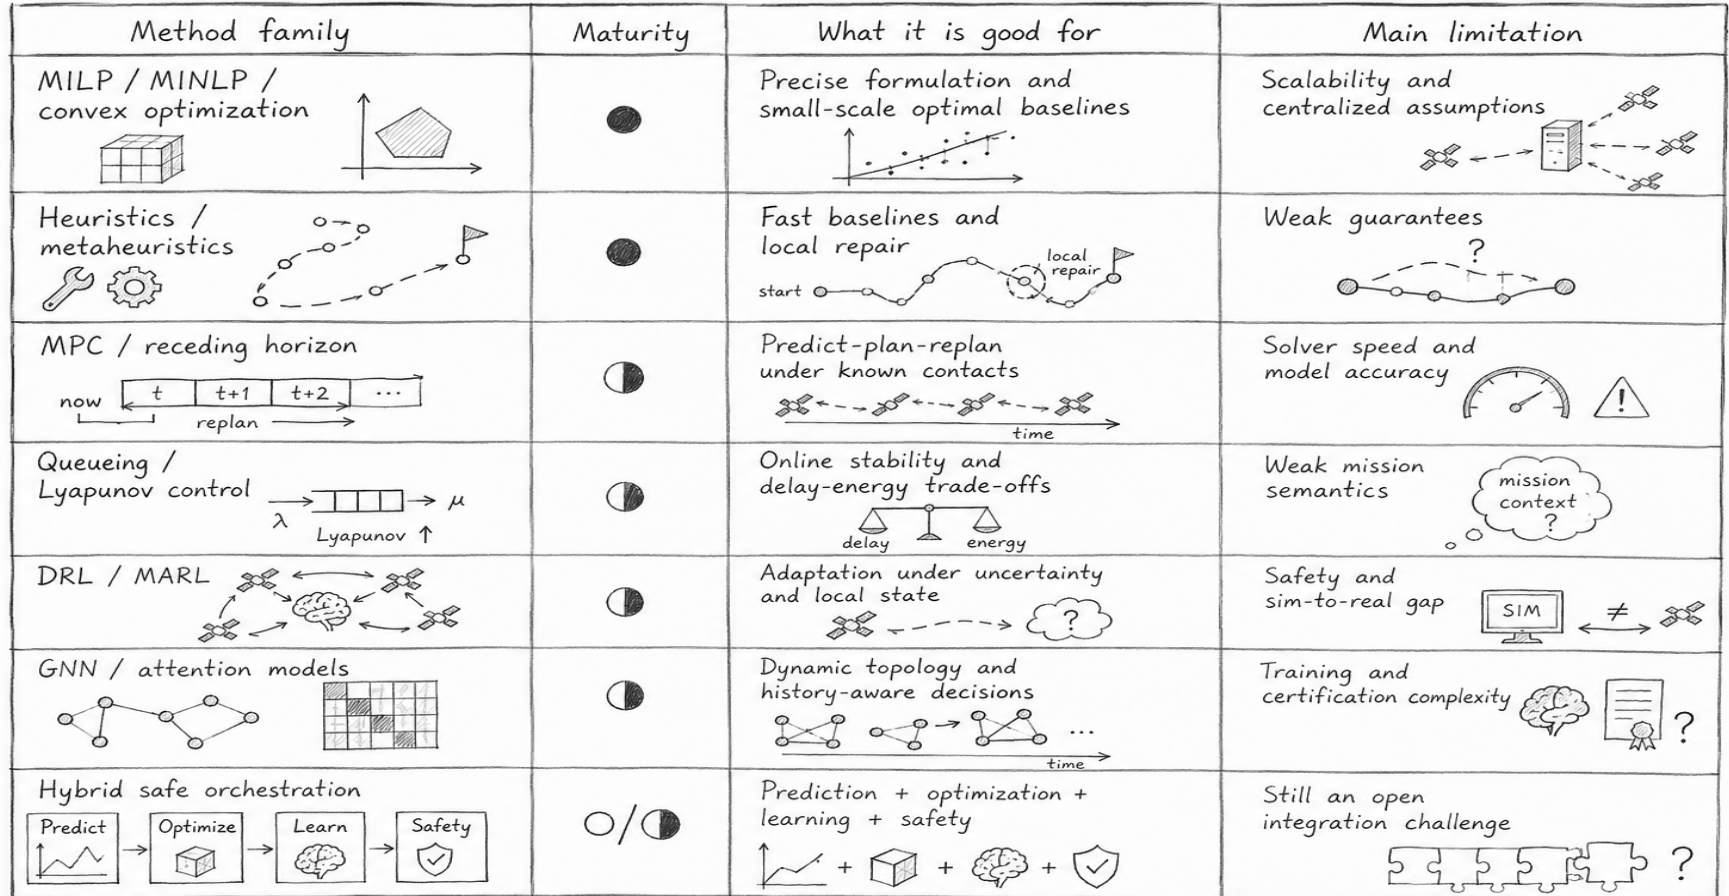 Method family
Maturity
What it is good for
Main limitation
MILP / MINLP /
convex optimization
Precise formulation and
small-scale optimal baselines
Scalability and
centralized assumptions
Heuristics /
metaheuristics
Fast baselines and
local repair
start
local
repair
Weak guarantees
?
MPC / receding horizon
now
t
t+1
t+2
...
replan
Predict-plan-replan
under known contacts
time
Solver speed and
model accuracy
!
Queueing /
Lyapunov control
λ
μ
Lyapunov ↑
Online stability and
delay-energy trade-offs
delay
energy
Weak mission
semantics
mission
context
?
DRL / MARL
Adaptation under uncertainty
and local state
?
Safety and
sim-to-real gap
SIM
≠
GNN / attention models
Dynamic topology and
history-aware decisions
...
time
Training and
certification complexity
?
Hybrid safe orchestration
Predict
Optimize
Learn
Safety
/
Prediction + optimization +
learning + safety
+
+
+
Still an open
integration challenge
?